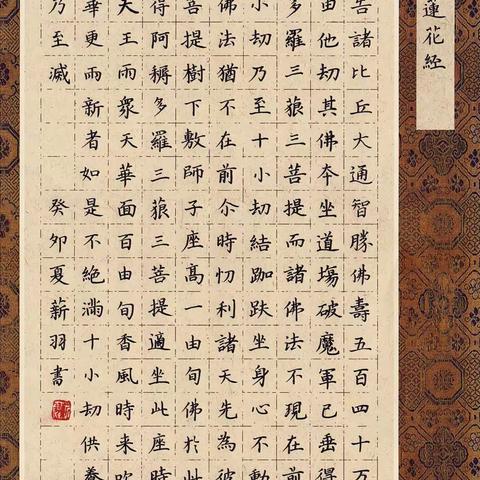 蓮花經
告諸比丘大通智勝佛壽五百四十万
由他劫其佛夲坐道塲破魔軍已垂得
多羅三藐三菩提而諸佛法不現在前
小劫乃至十小劫結跏趺坐身心不動
佛法猶不在前尒時忉利諸天先為彼
菩提樹下敷師子座髙一由旬佛於此
得阿耨多羅三藐三菩提適坐此座時
天王雨衆天華面百由旬香風時来吹
華更雨新者如是不絶滿十小劫供養
乃至滅 癸夘夏薪羽書